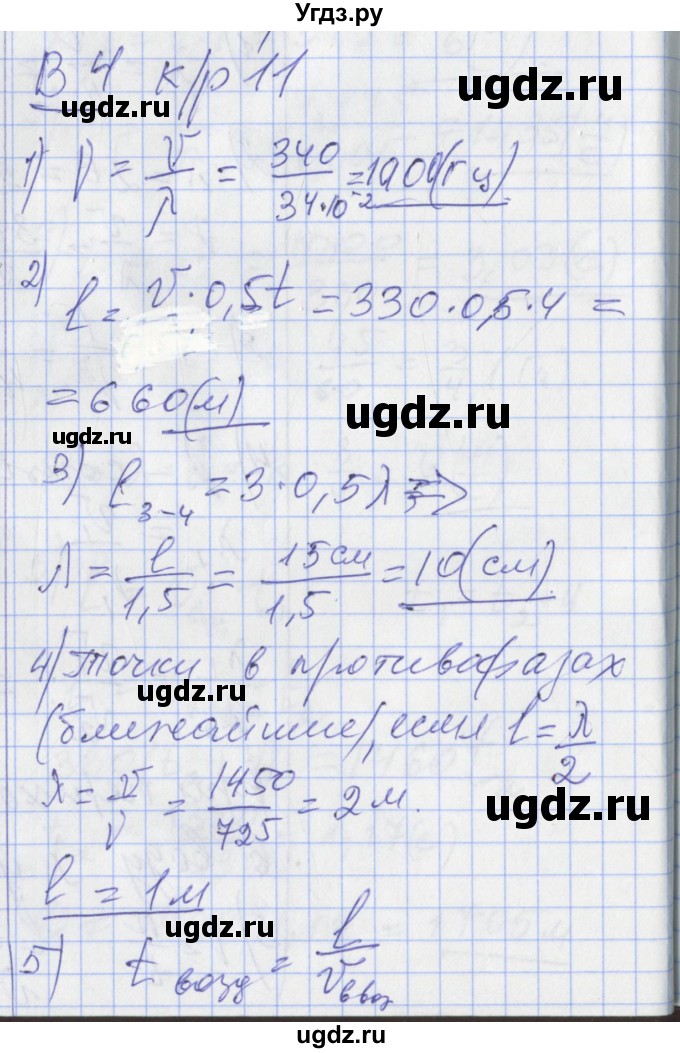 Угдз.ру
В 4 к/р 11
ugdz.ru
ugdz.ru
1) ν = v/λ = 340/34·10⁻² = 1000(Гц)
ugdz.ru
2) l = v·0,5t = 330·0,5·4 =
= 660(м)
ugdz.ru
ugdz.ru
3) l₃₋₄ = 3·0,5λ =>
λ = l/1,5 = 15см/1,5 = 10(см)
4) Точки в противофазах
ugdz.ru
(ближайшие), если l = λ/2
λ = v/ν = 1450/725 = 2м.
ugdz.ru
l = 1м
ugdz.ru
5) t возд = l/v
ugdz.ru